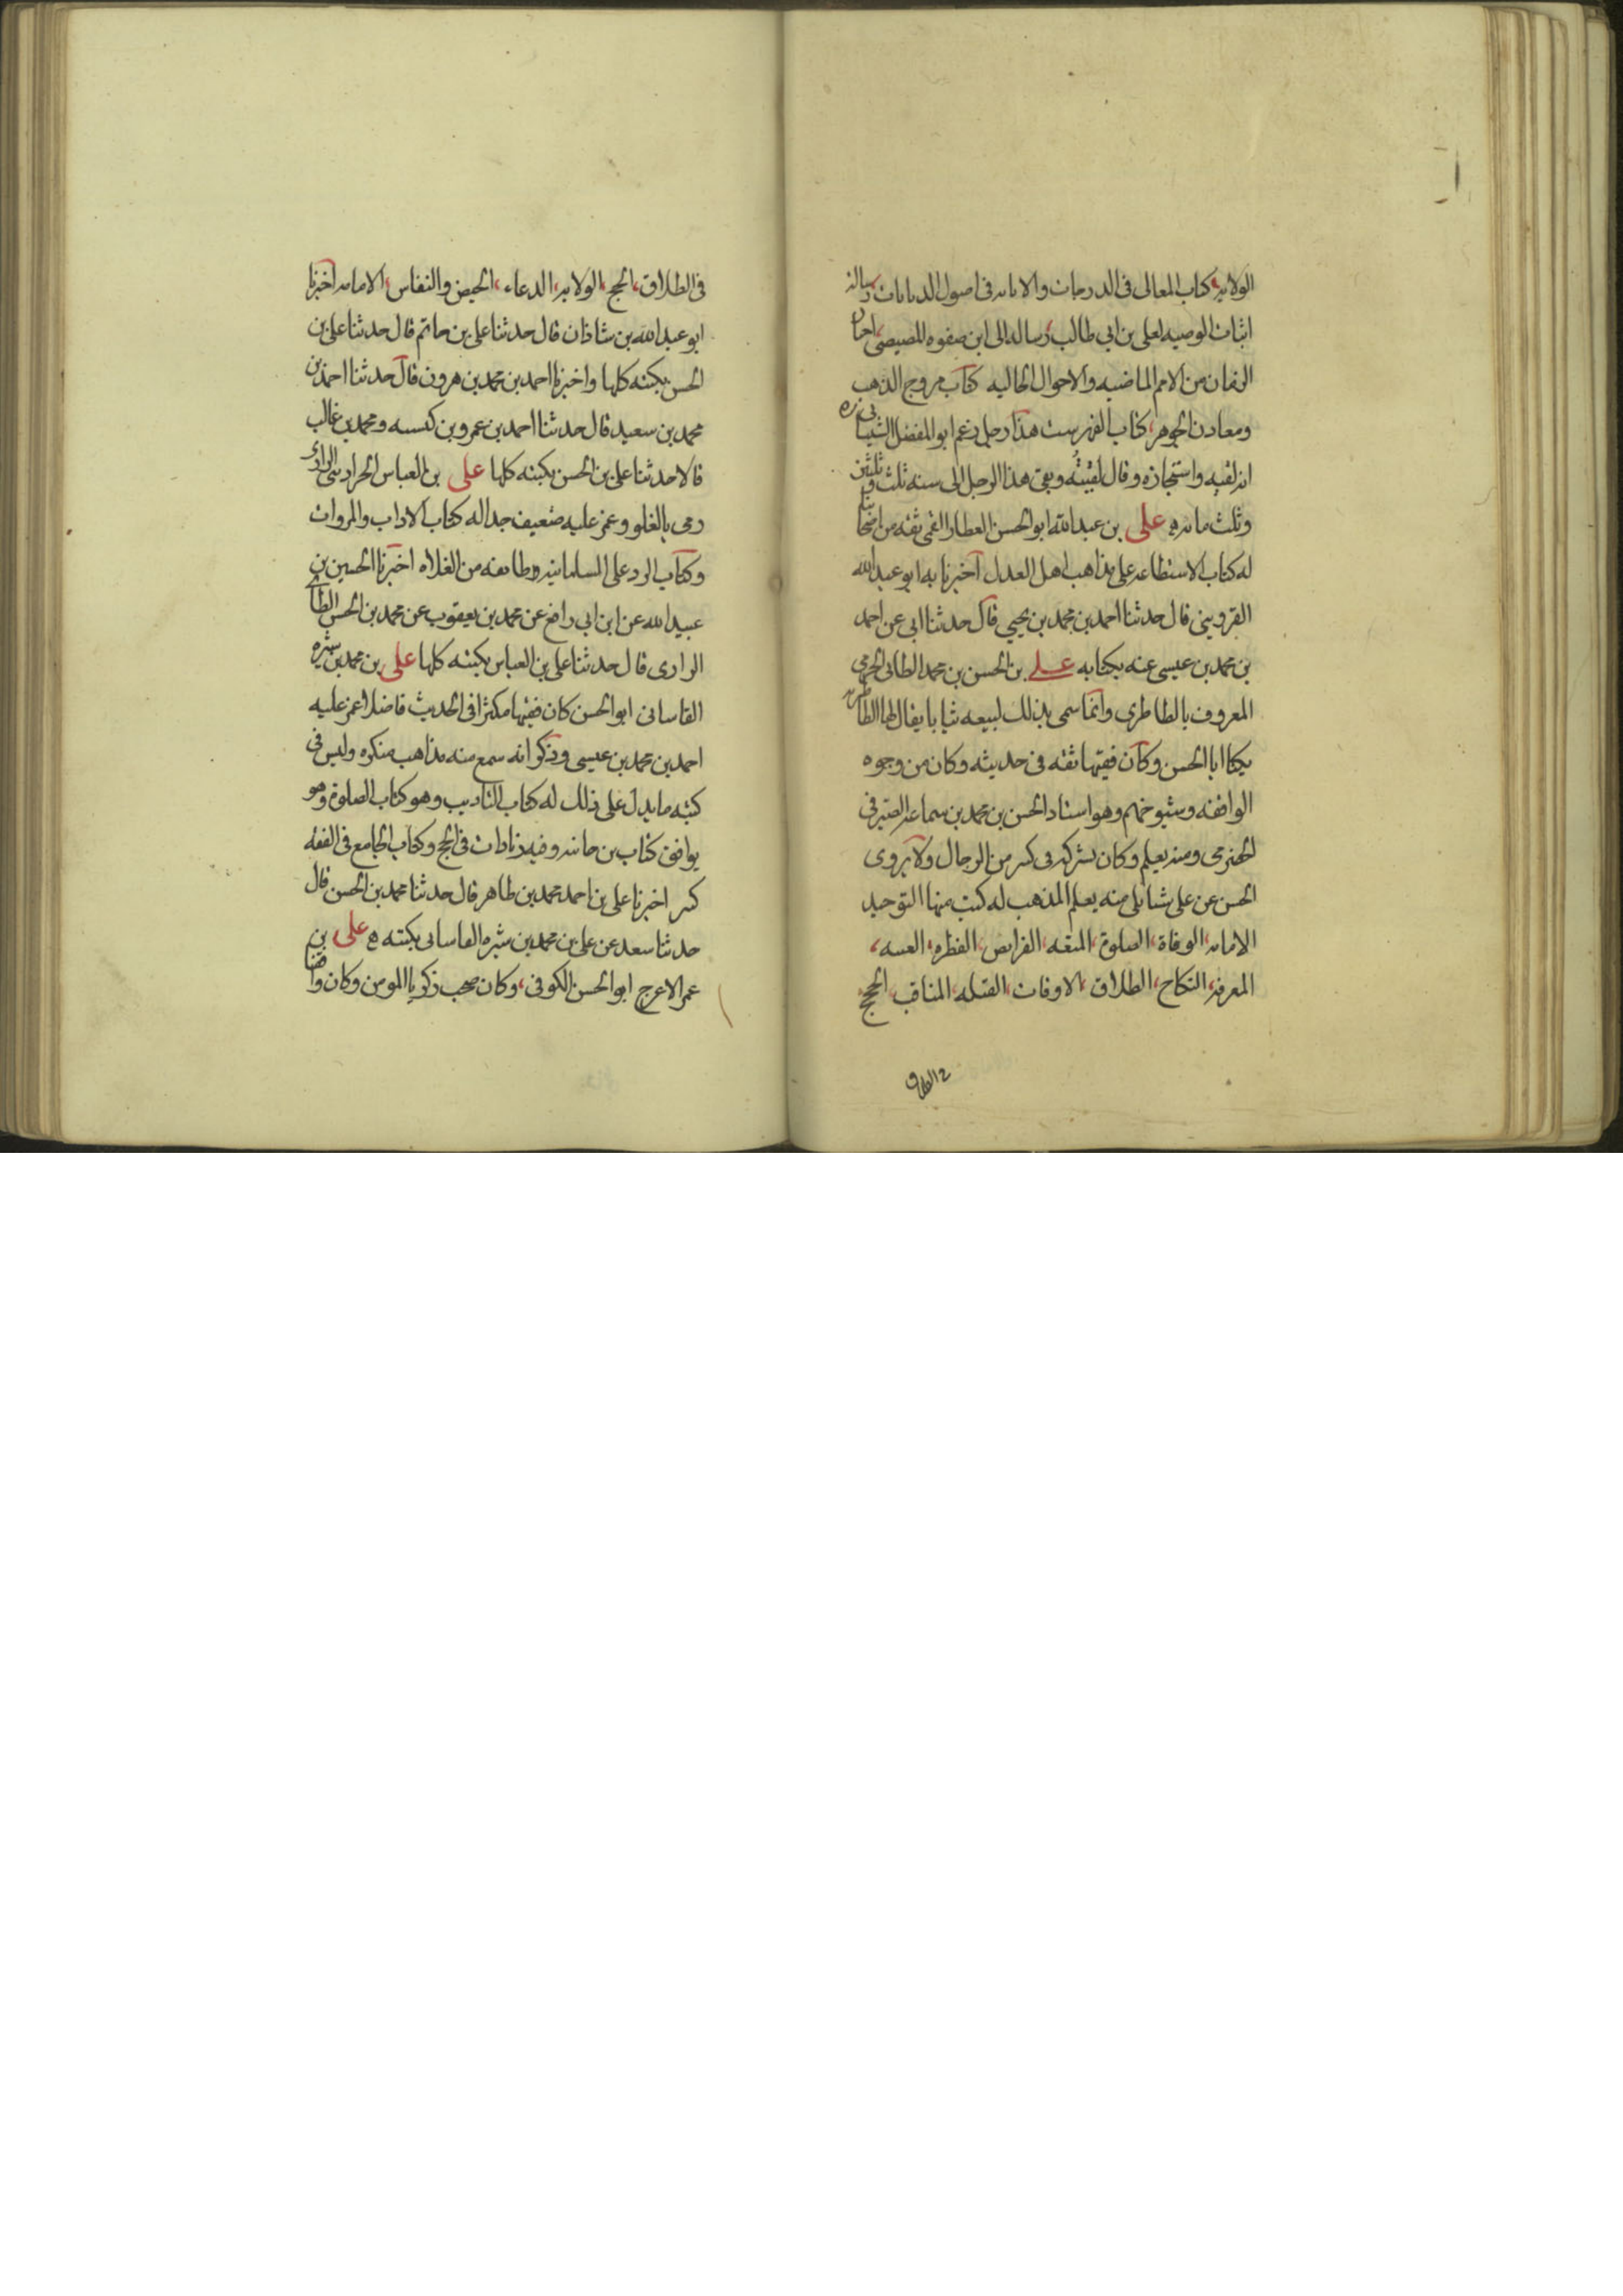 الولايه، كتاب المعالى فى الدرجات والابانه فى اصول الديانات رساله
اثبات الوصيه لعلى بن ابى طالب، رساله الى ابن صفوه المصيصى، اخبار
الزمان من الامم الماضيه والاحوال الخاليه كتاب مروج الذهب
ومعادن الجوهر، كتاب الفهرست هذا رجل زعم ابو المفضل الشيبانى ره
انه لقيه واستجازه وقال لقيته وبقى هذا الرجل الى سنه ثلث وثلثين
وثلث مائه ه على بن عبدالله ابوالحسن العطار القمى ثقه من اصحابنا
له كتاب الاستطاعه على مذاهب اهل العدل اخبرنا به ابو عبدالله
القزوينى قال حدثنا احمد بن محمد بن يحيى قال حدثنا ابى عن احمد
بن محمد بن عيسى عنه بكتابه على بن الحسن بن محمد الطائى الجرمى
المعروف بالطاطرى وانما سمى بذلك لبيعه ثيابا يقال لها الطاطريه
يكنا ابا الحسن وكان فقيها ثقه فى حديثه وكان من وجوه
الواقفه وشيوخهم وهو استاد الحسن بن محمد بن سماعه الصيرفى
الحضرمى ومنه تعلم وكان يشركه فى كثير من الرجال ولا يروى
الحسن عن على شيئا بلى منه تعلم المذهب له كتب منها التوحيد
الامامه، الوفاة، الصلوة، المتعه، الفرايض، الفطره، الغيبه،
المعرفه، النكاح، الطلاق، الاوقات، القبله، المناقب، الحجج،
فى الطلاق
فى الطلاق، الحج، الولايه، الدعاء، الحيض والنفاس، الامامه اخبرنا
ابو عبدالله بن شاذان قال حدثنا على بن حاتم قال حدثنا على بن
الحسن بكتبه كلها واخبرنا احمد بن محمد بن هرون قال حدثنا احمد بن
محمد بن سعيد قال حدثنا احمد بن عمرو بن كيسبه ومحمد بن غالب
قالا حدثنا على بن الحسن بكتبه كلها على بن العباس الجراذينى الرازى
رمى بالغلو وغمز عليه ضعيف جدا له كتاب الاداب والمروات
وكتاب الرد على السلمانيه وطائفه من الغلاه اخبرنا الحسين بن
عبيدالله عن ابن ابى رافع عن محمد بن يعقوب عن محمد بن الحسن الطائى
الرازى قال حدثنا على بن العباس بكتبه كلها على بن محمد بن شيره
القاسانى ابو الحسن كان فقيها مكثرا فى الحديث فاضلا غمز عليه
احمد بن محمد بن عيسى وذكر انه سمع منه مذاهب منكره وليس فى
كتبه ما يدل على ذلك له كتاب التاديب وهو كتاب الصلوة وهو
يوافق كتاب بن خانبه وفيه زيادات فى الحج وكتاب الجامع فى الفقه
كبير اخبرنا على بن احمد بن محمد بن طاهر قال حدثنا محمد بن الحسن قال
حدثنا سعد عن على بن محمد بن شيره القاسانى بكتبه ه على بن
عمر الاعرج ابو الحسن الكوفى، وكان صحب زكريا المومن وكان واقفا